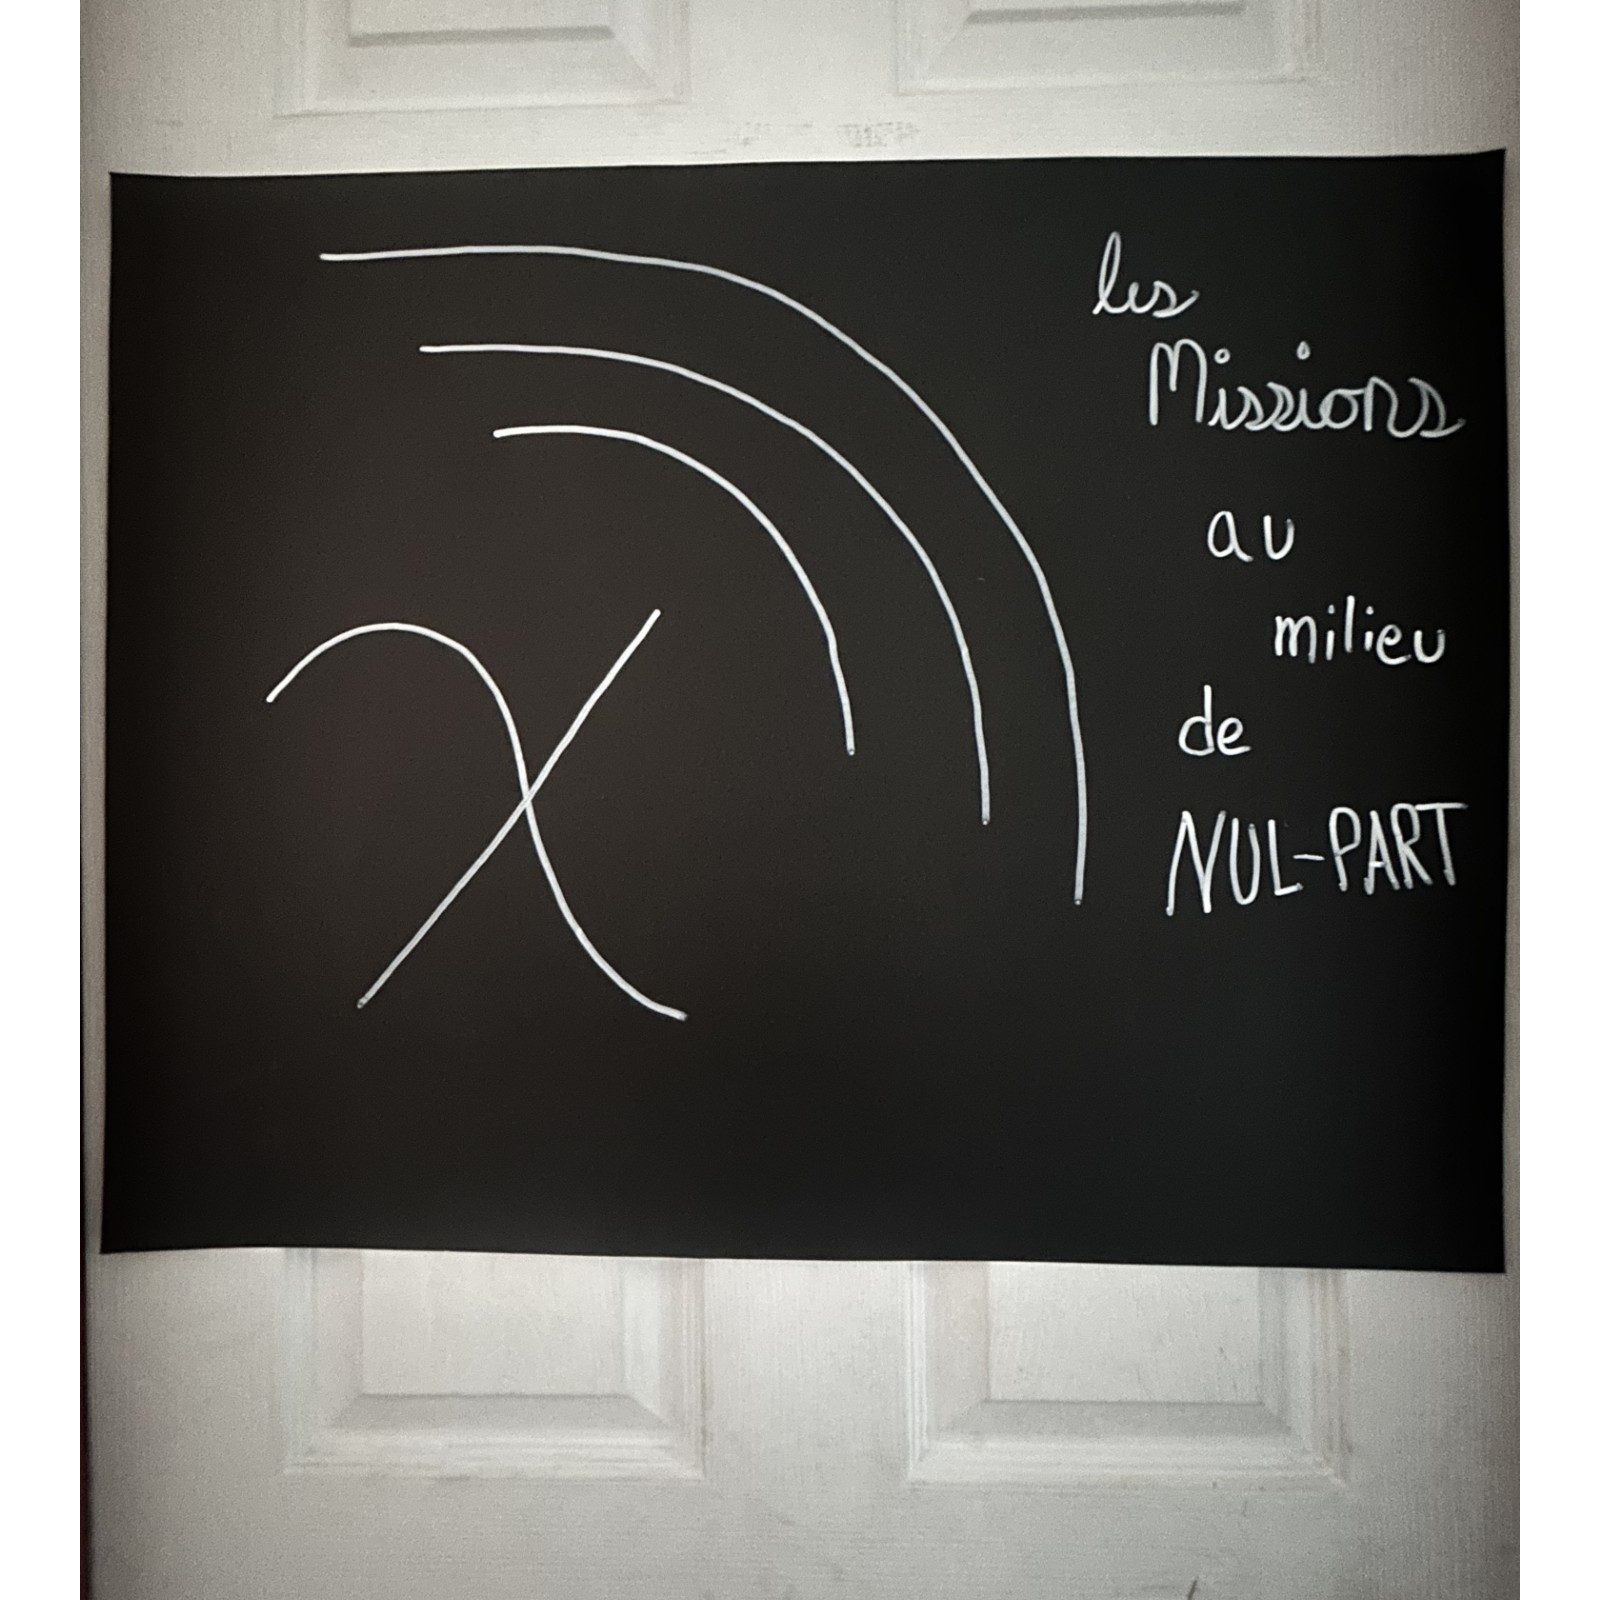 les
Missions
au
milieu
de
NUL-PART